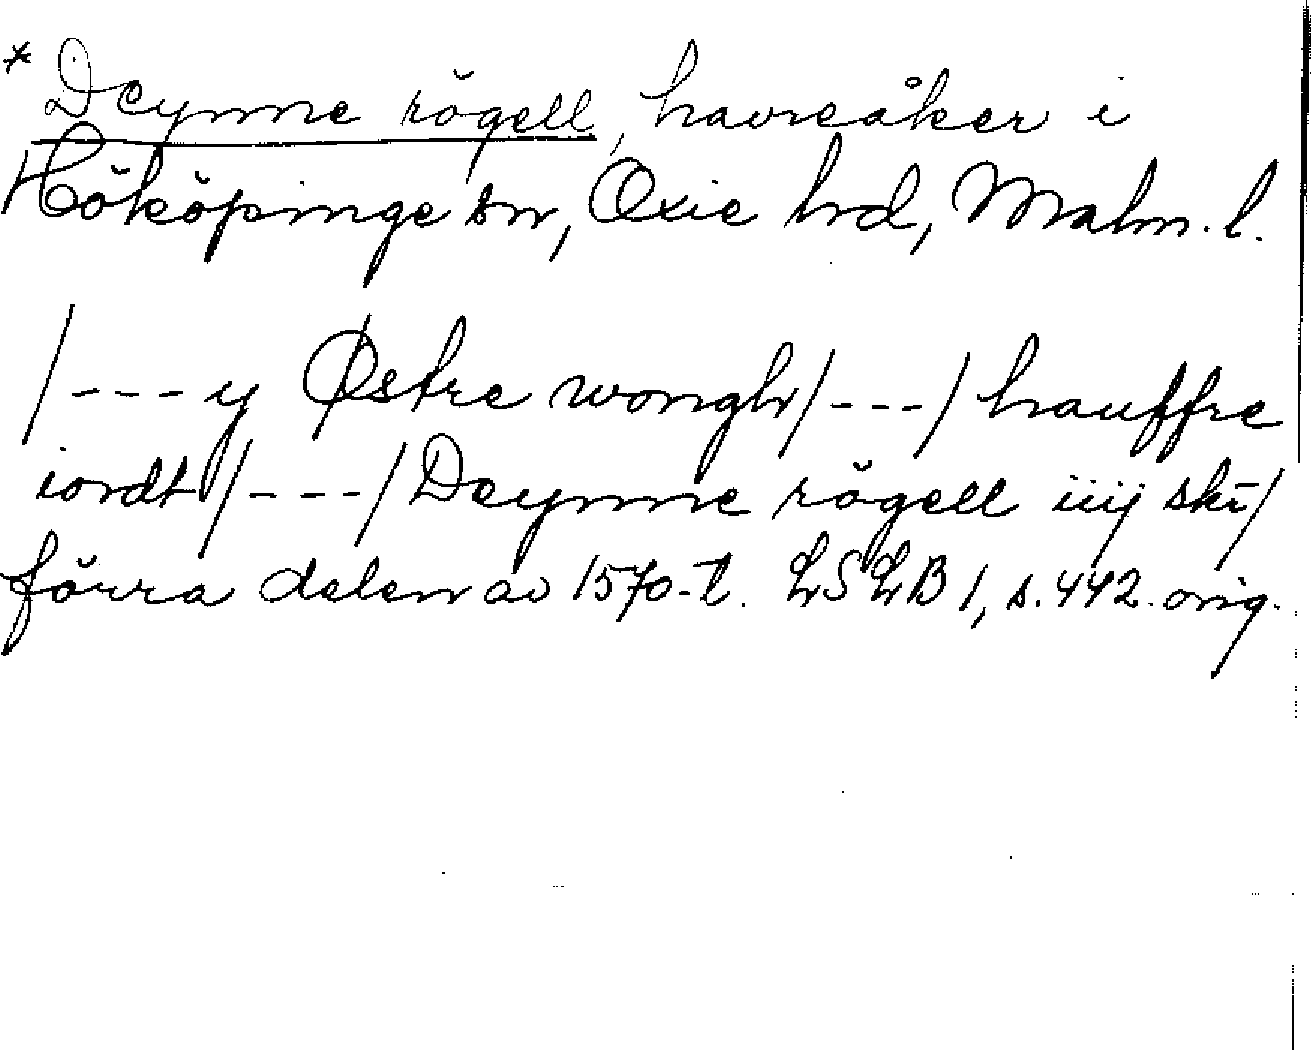 * Deynne rögell, havreåker i
Hököpinge sn, Oxie hrd, Malm. l.
/---y Østre wongh/---/ hauffre
iordt/---/Deynne rögell iiij sk̄/
förra delen av 1570-t. LSLB 1, s. 442. orig.